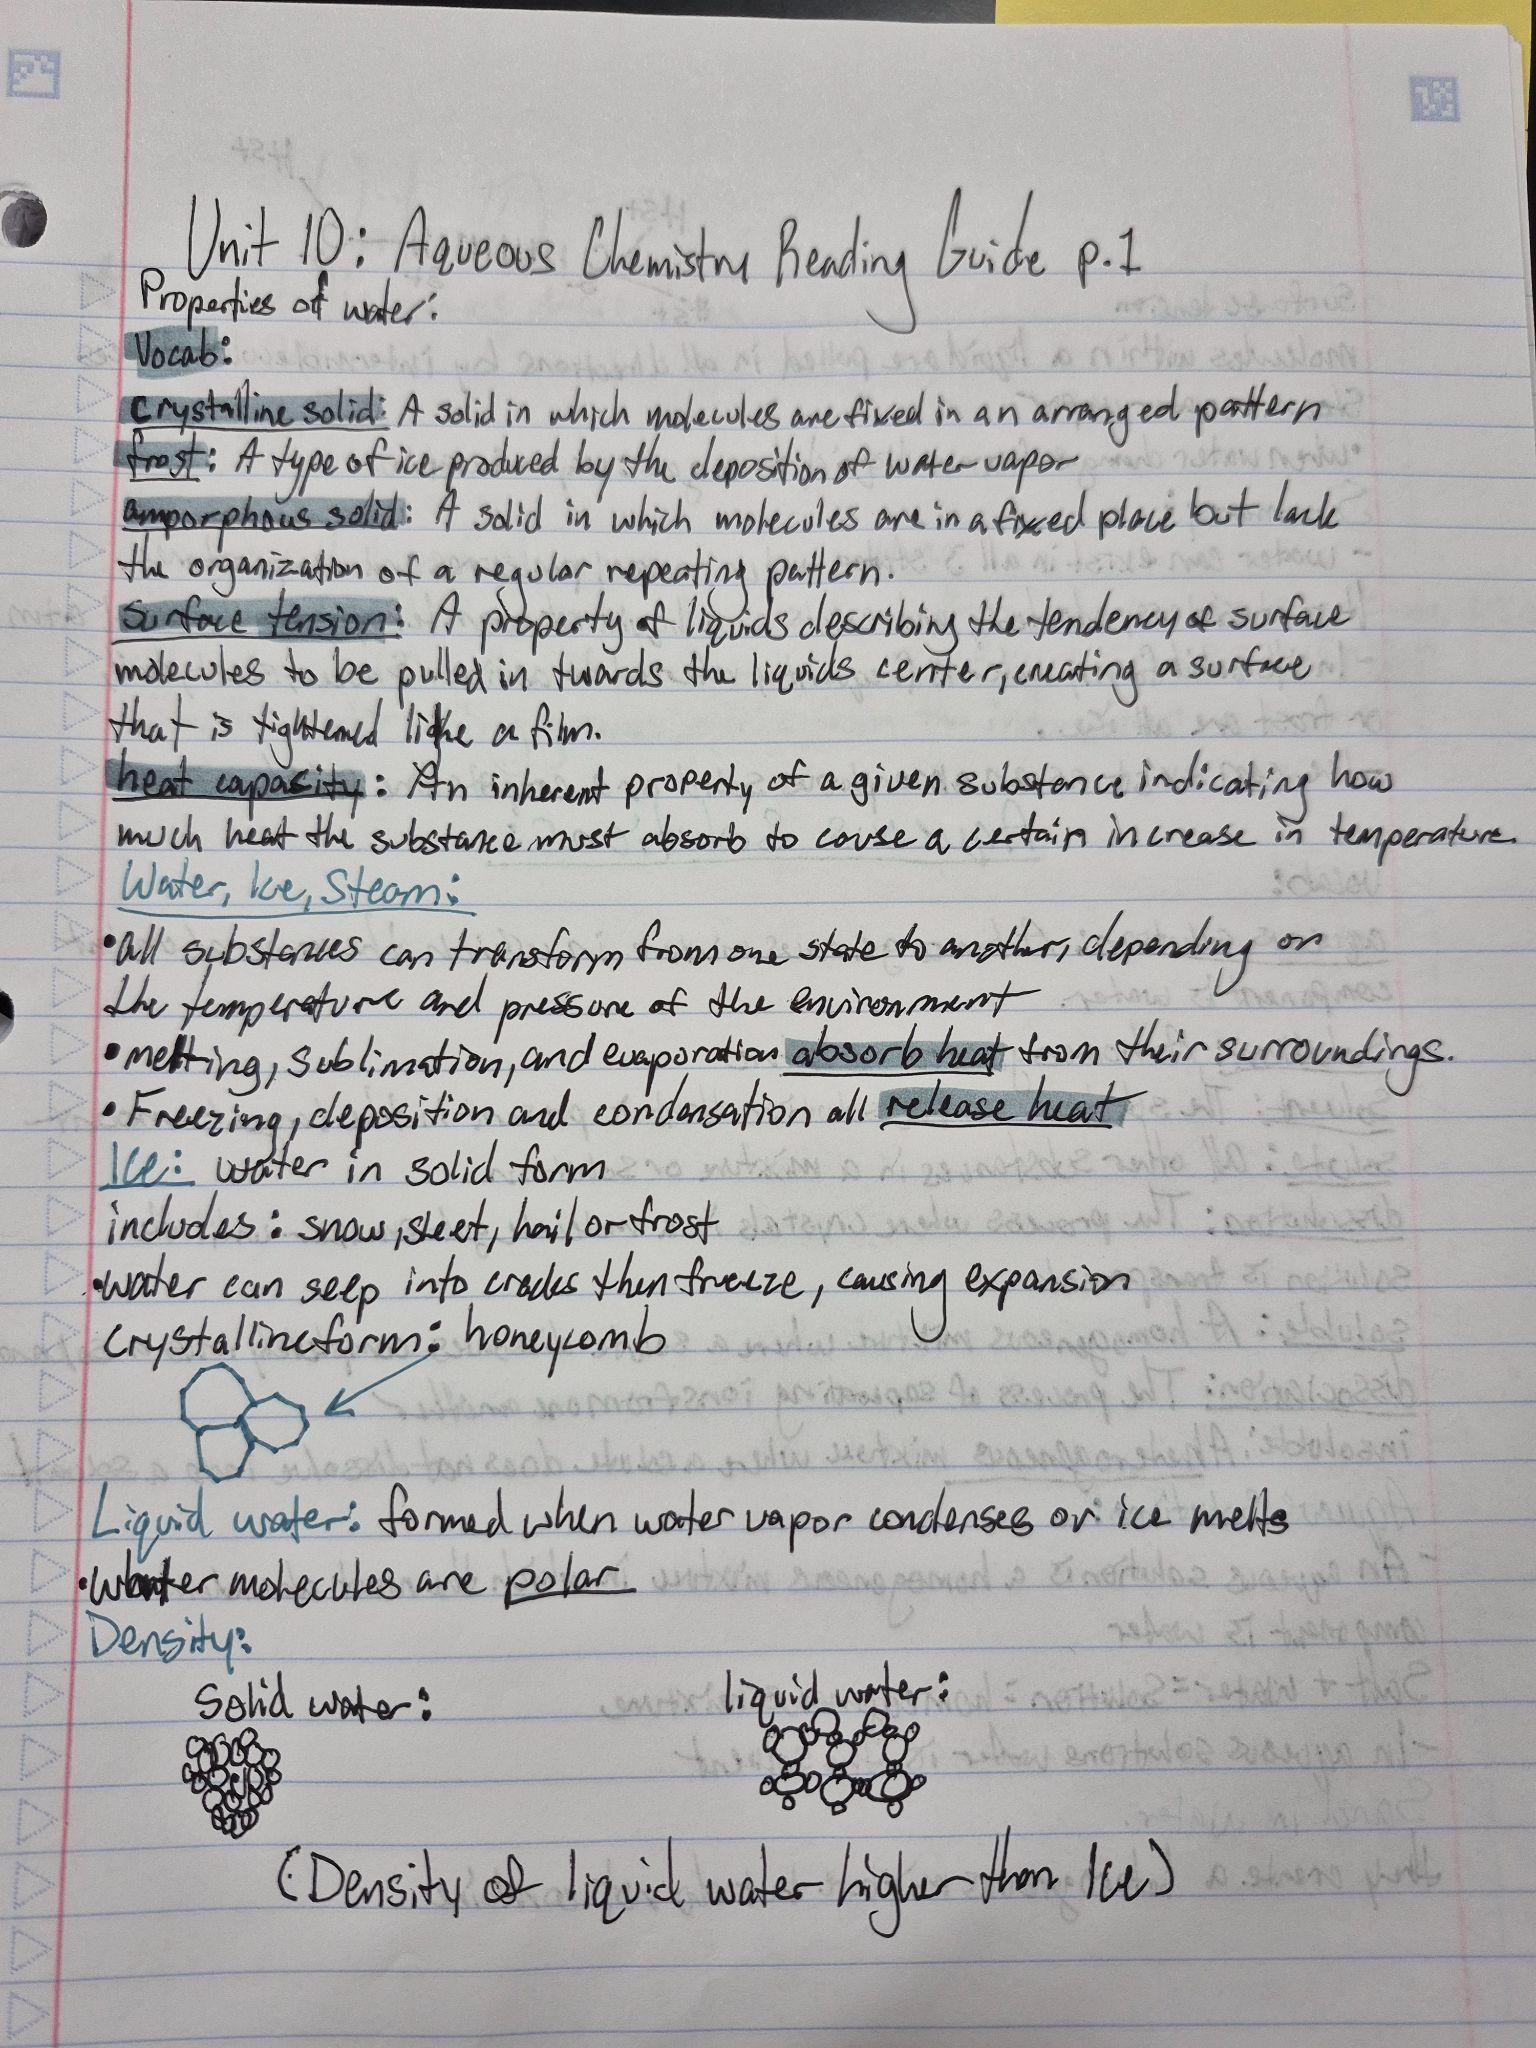 Unit 10: Aqueous Chemistry Reading Guide p.1
Properties of water:
Vocab:
crystalline solid: A solid in which molecules are fixed in an arranged pattern
frost: A type of ice produced by the deposition of water vapor
amporphous solid: A solid in which molecules are in a fixed place but lack
the organization of a regular repeating pattern.
Surface tension: A property of liquids describing the tendency of surface
molecules to be pulled in twards the liquids center, creating a surface
that is tightened like a film.
heat capasity: An inherent property of a given substance indicating how
much heat the substance must absorb to cause a certain increase in temperature.
Water, Ice, Steam:
•all substances can transform from one state to another, depending on
the temperature and pressure of the environment
•melting, sublimation, and evaporation absorb heat from their surroundings.
• Freezing, deposition and condensation all release heat
Ice: water in solid form
includes: snow, sleet, hail or frost
•water can seep into cracks then freeze, causing expansion
crystalline form: honeycomb
Liquid water: formed when water vapor condenses or ice melts
•water molecules are polar
Density:
Solid water: liquid water:
(Density of liquid water higher than Ice)